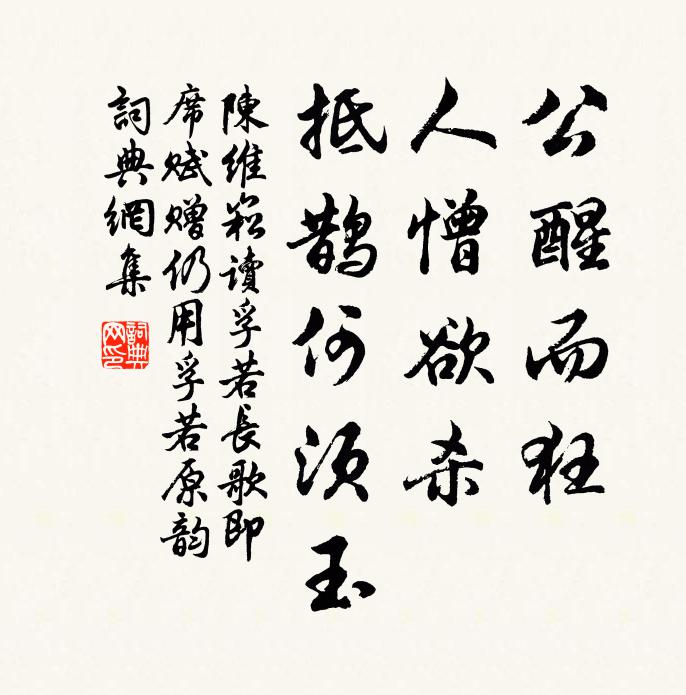 公醒而狂
人憎欲杀
抵鹊何须玉
陳维崧讀孚若長歌即
席赋赠仍用孚若原韵
詞典網集
詞典網印